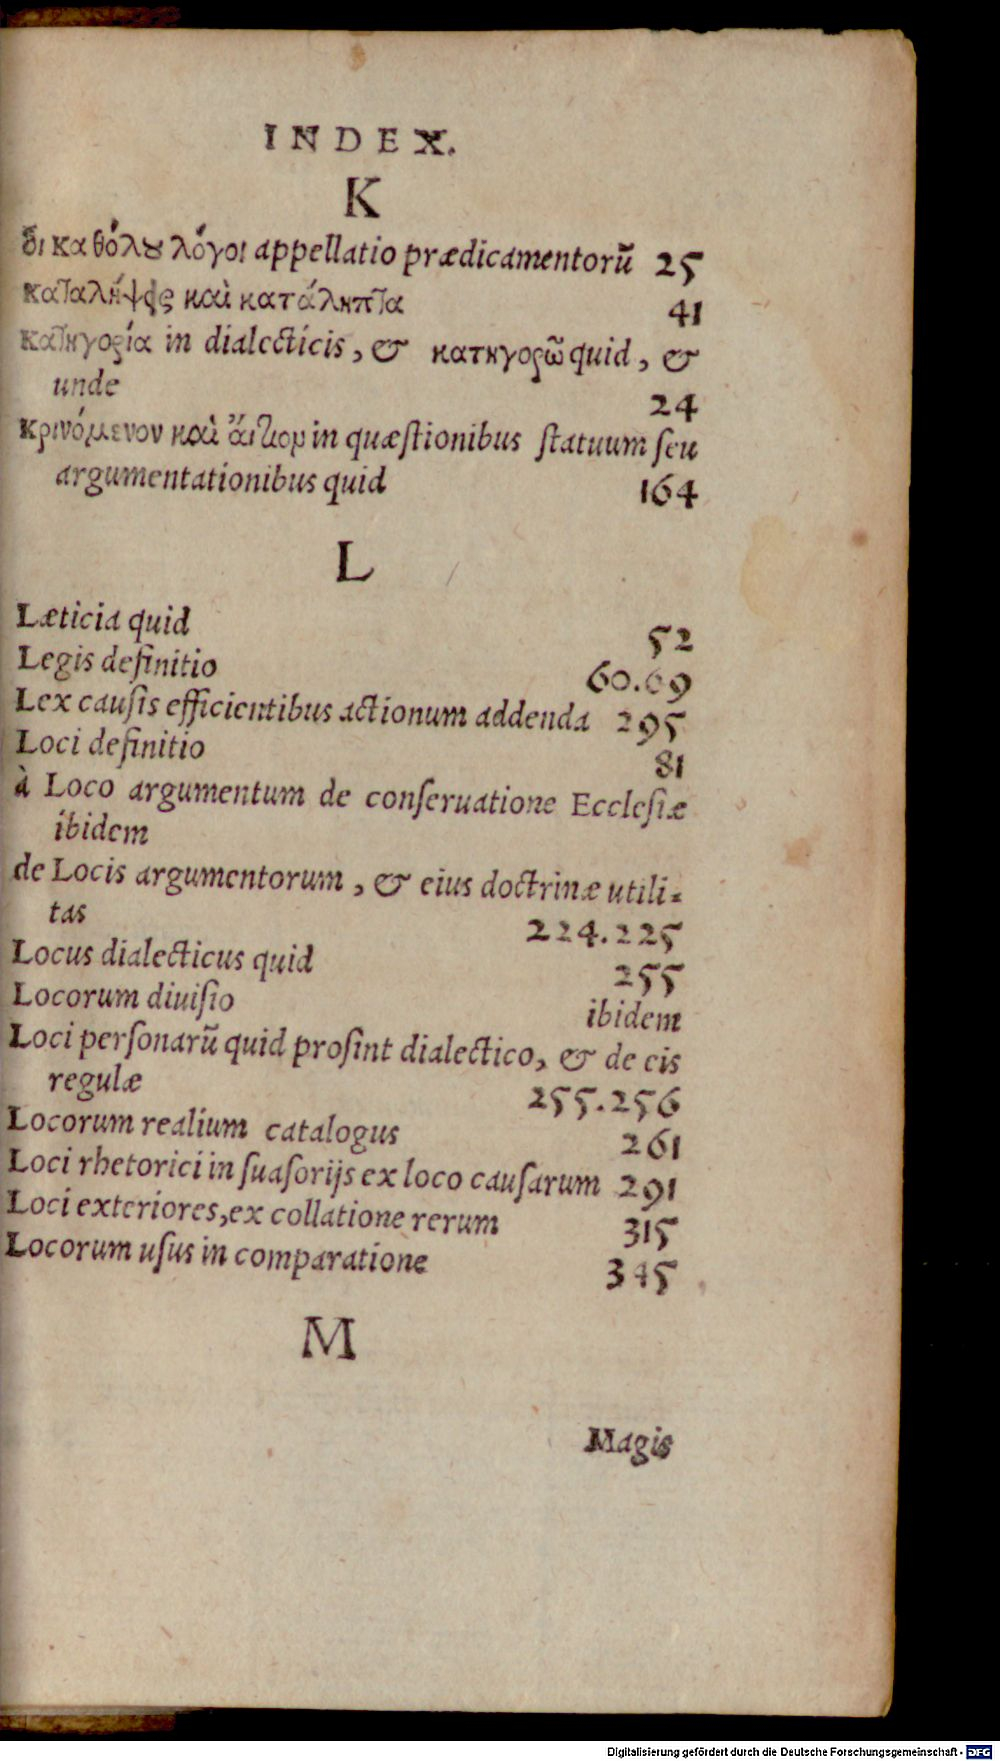 INDEX.
K
ὃι καθόλου λόγοι appellatio prædicamentorũ 25
καταλήψεις καὶ κατάληπτα 41
κατηγορία in dialecticis, & κατηγορῶ quid, &
unde 24
κρινόμενον καὶ ἄιτιον in quæſtionibus ſtatuum ſeu
argumentationibus quid 164
L
Læticia quid 52
Legis definitio 60.69
Lex cauſis efficientibus actionum addenda 295
Loci definitio 81
à Loco argumentum de conſeruatione Eccleſiæ
ibidem
de Locis argumentorum, & eius doctrinæ utili-
tas 224.225
Locus dialecticus quid 255
Locorum diuiſio ibidem
Loci perſonarũ quid proſint dialectico, & de eis
regulæ 255.256
Locorum realium catalogus 261
Loci rhetorici in ſuaſorijs ex loco cauſarum 291
Loci exteriores, ex collatione rerum 315
Locorum uſus in comparatione 345
M
Magis
Digitalisierung gefördert durch die Deutsche Forschungsgemeinschaft - DFG